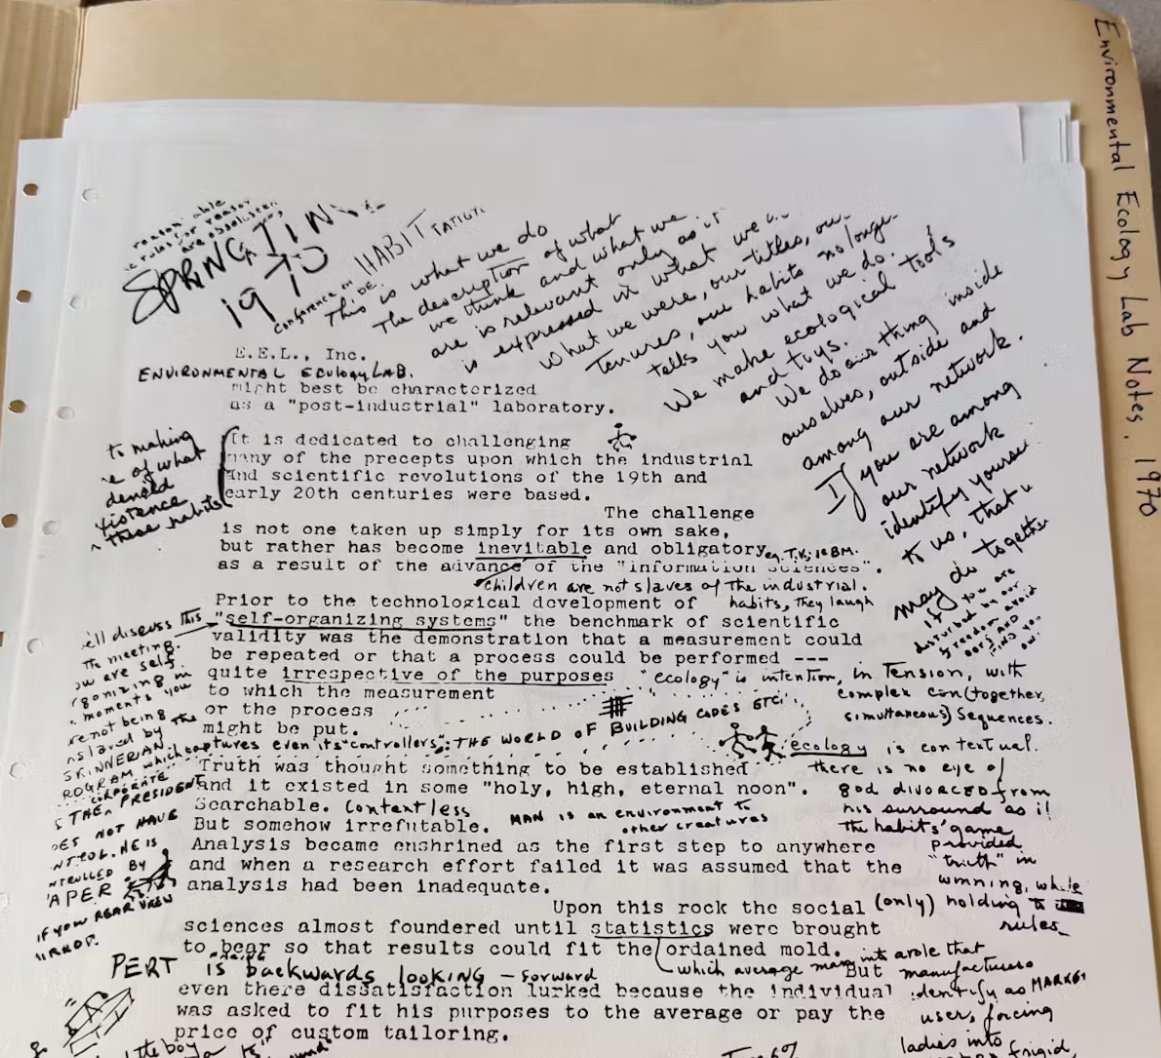 Environmental Ecology Lab Notes. 1970
reason able
rules for reason
are obsolete
SPRINGTIME
1970
Conference on HABITTATION
This is what we do
The description of what
we think and what we
are is relevant only as it
is expressed in what we
What we were, our titles, our
Tenures, our habits no longer
tells you what we do.
We make ecological tools
and toys.
We do our thing inside
ourselves, outside and
among our network.
If you are among
our network
identify yourse
to us, that
may do together
If you are
disturbed by our
freedom, avoid
ours AND
FIND YOU
OWN.
E.E.L., Inc.
ENVIRONMENTAL ECOLOGY LAB.
might best be characterized
as a "post-industrial" laboratory.
to making
e of what
denied
xistence
these habits
It is dedicated to challenging
many of the precepts upon which the industrial
and scientific revolutions of the 19th and
early 20th centuries were based.
The challenge
is not one taken up simply for its own sake,
but rather has become inevitable and obligatory eg. T.K; IBM.
as a result of the advance of the "information sciences".
children are not slaves of the industrial
habits, they laugh
Prior to the technological development of
"self-organizing systems" the benchmark of scientific
validity was the demonstration that a measurement could
be repeated or that a process could be performed ---
quite irrespective of the purposes
to which the measurement
or the process
might be put.
"ecology" is intention, in Tension, with
complex con(together,
simultaneous) sequences.
ill discuss this
The meeting.
ou are self
rganizing in
moments you
re not being
nslaved by the
SKINNERIAN
ROGRAM which captures even its "controllers"; THE WORLD OF BUILDING CODES ETC.
CORPORATE
THE PRESIDENT
OES NOT HAVE
NTROL. HE IS
NTROLLED BY
APER
IF YOUR REAR VIEW
IRROR.
ecology is contextual.
there is no eye of
god divorced from
his surround as if
the habits' game
provided
"truth" in
winning, while
(only) holding to
rules
Truth was thought something to be established
and it existed in some "holy, high, eternal noon".
Searchable. Contentless
But somehow irrefutable.
MAN is an environment to
other creatures
Analysis became enshrined as the first step to anywhere
and when a research effort failed it was assumed that the
analysis had been inadequate.
Upon this rock the social
sciences almost foundered until statistics were brought
to bear so that results could fit the ordained mold.
which average man into a role that
manufacturers
identify as MARKET
user, forcing
ladies into
frigid,
PERT is backwards looking - forward
But
even there dissatisfaction lurked because the individual
was asked to fit his purposes to the average or pay the
price of custom tailoring.
the boy